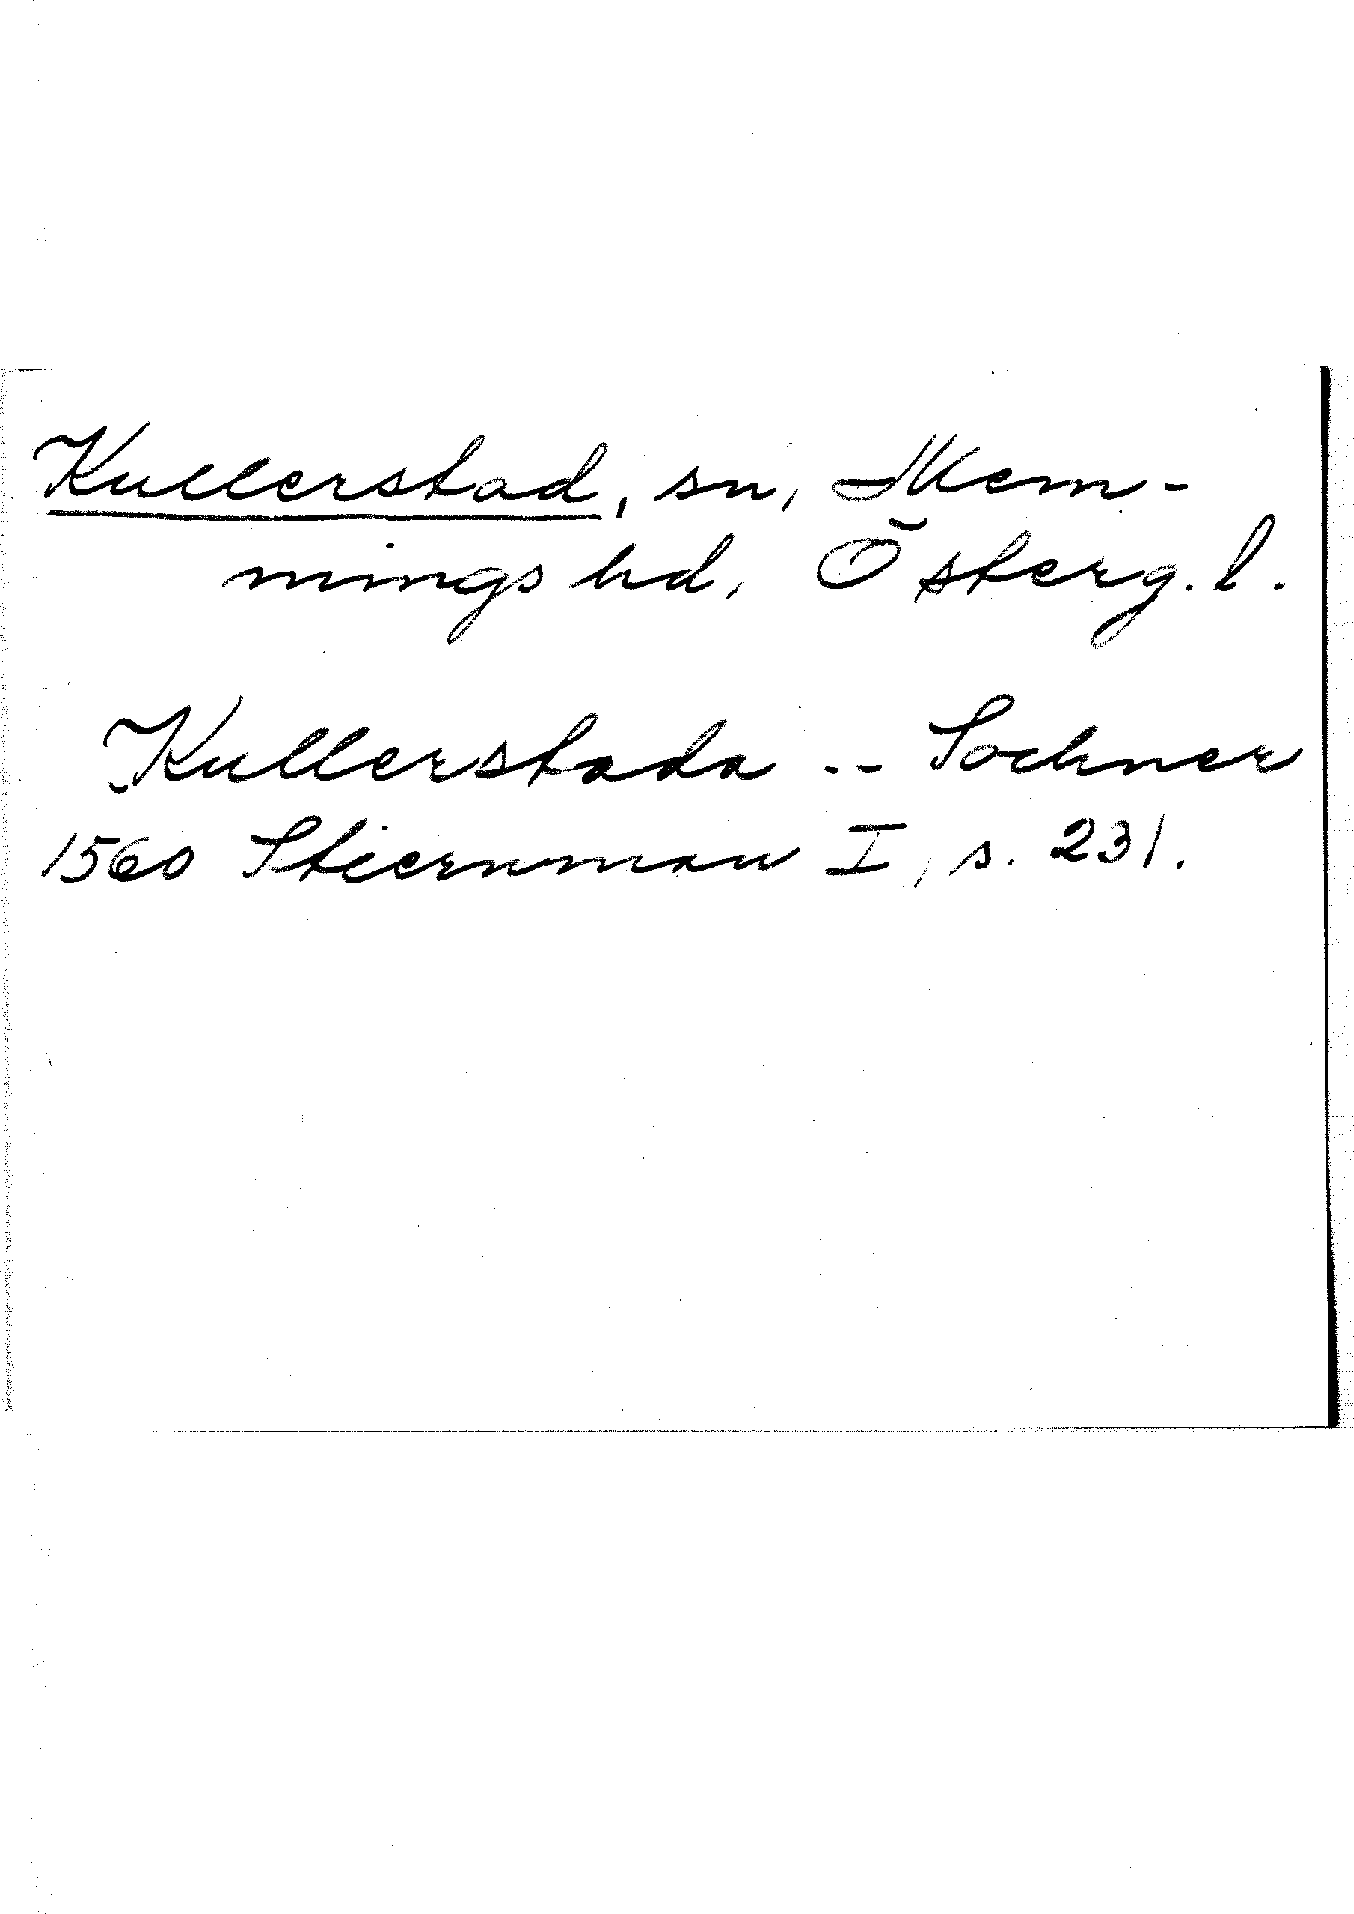 Kullerstad, sn, Mem-
mings hd, Österg. l.
Kullerstada -- Sochner
1560 Stiernman I, s. 231.